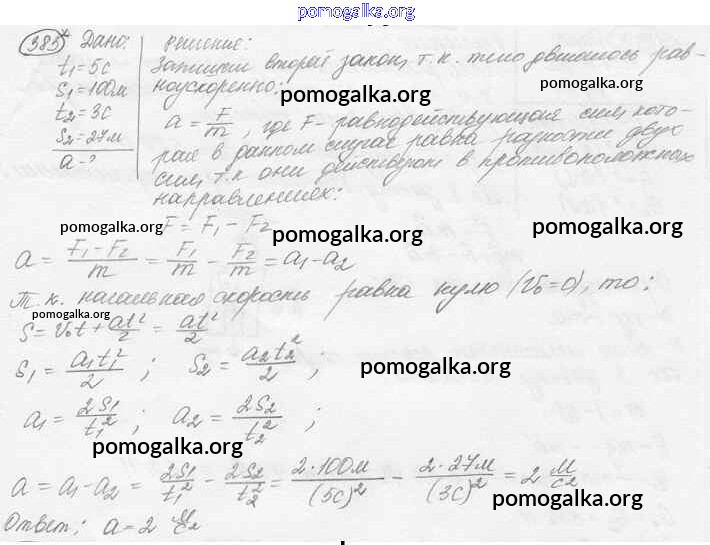 pomogalka.org
385* Дано: Решение:
t₁ = 5с Запишем второй закон, т.к. тело двигалось рав-
S₁ = 100м ноускоренно: pomogalka.org pomogalka.org
t₂ = 3с a = F/m, где F - равнодействующая сил, кото-
S₂ = 27м рая в данном случае равна разности двух
a - ? сил, т.к они действуют в противоположных
направлениях:
pomogalka.org F = F₁ - F₂ pomogalka.org pomogalka.org
a = (F₁ - F₂)/m = F₁/m - F₂/m = a₁ - a₂
Т.к. начальная скорость равна нулю (V₀=0), то:
pomogalka.org
S = V₀t + at²/2 = at²/2
S₁ = a₁t₁²/2 ; S₂ = a₂t₂²/2 ; pomogalka.org
a₁ = 2S₁/t₁² ; a₂ = 2S₂/t₂² ;
pomogalka.org
a = a₁ - a₂ = 2S₁/t₁² - 2S₂/t₂² = 2·100м/(5с)² - 2·27м/(3с)² = 2 м/с²
pomogalka.org
Ответ: a = 2 м/с²